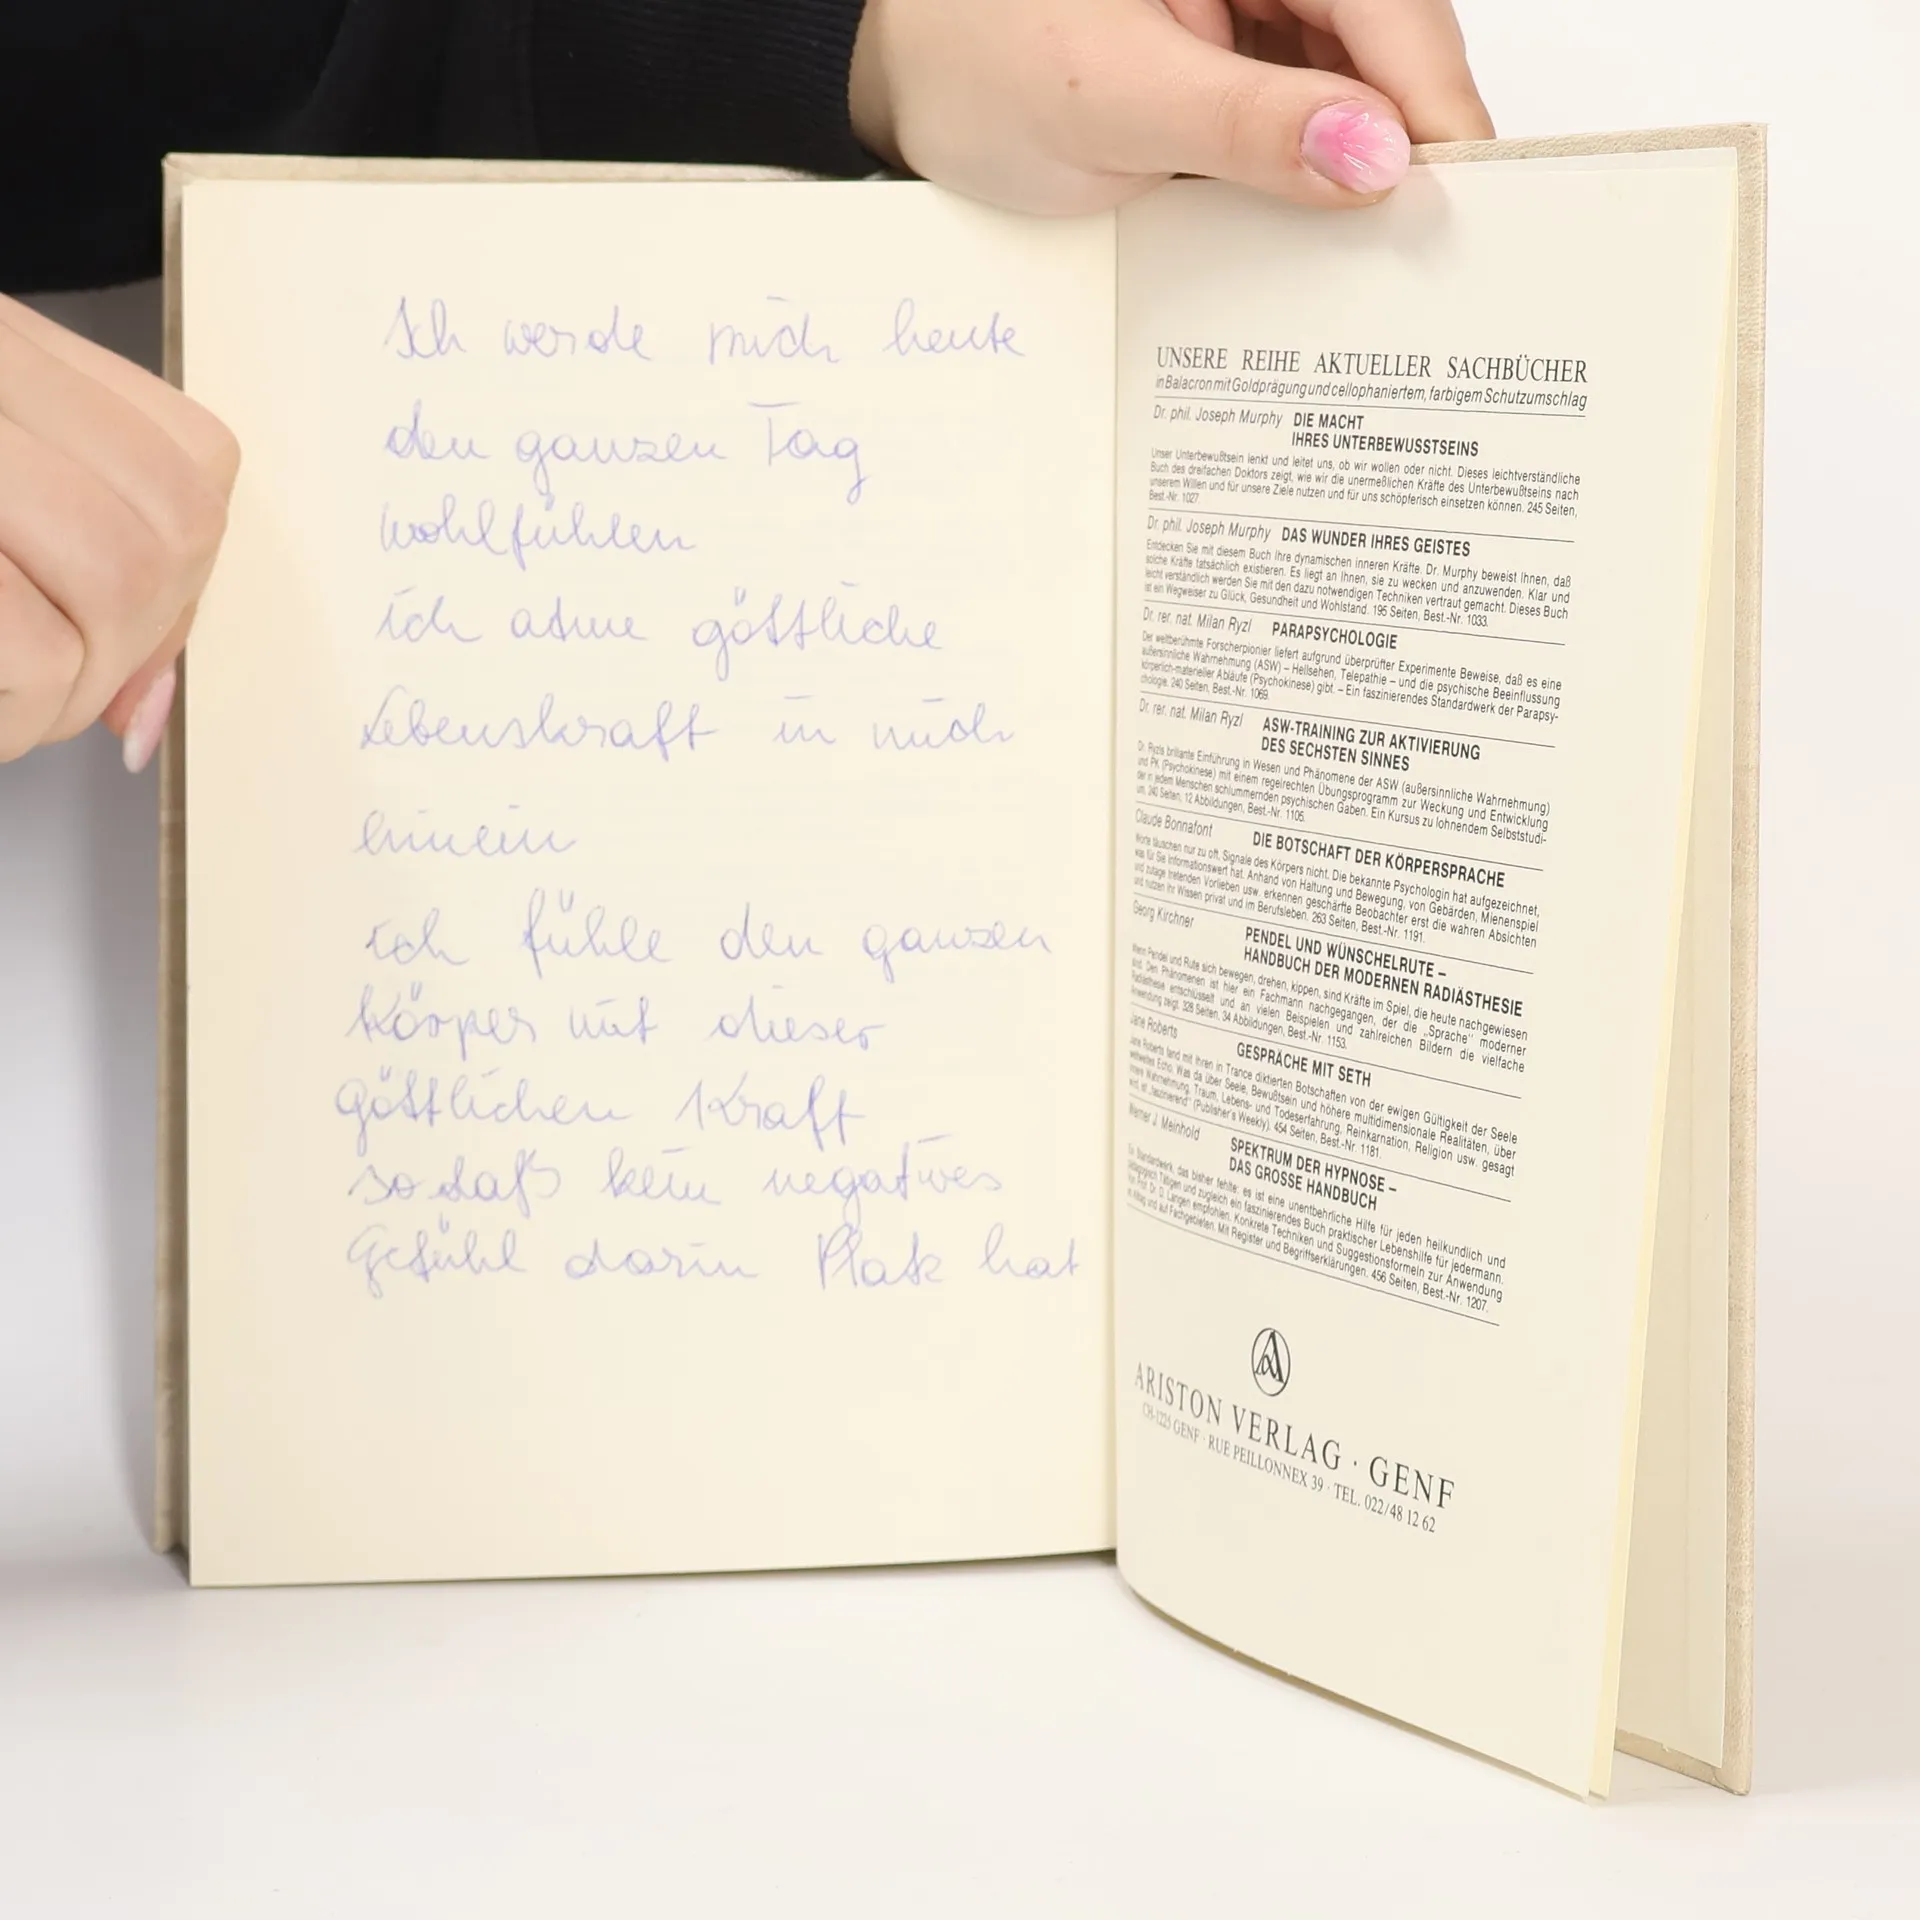 Ich werde mich heute
den ganzen Tag
wohlfühlen
ich atme göttliche
Lebenskraft in mich
hinein
ich fühle den ganzen
Körper mit dieser
göttlichen Kraft
so daß kein negatives
Gefühl darin Platz hat
UNSERE REIHE AKTUELLER SACHBÜCHER
in Balacron mit Goldprägung und cellophaniertem, farbigem Schutzumschlag
Dr. phil. Joseph Murphy DIE MACHT
IHRES UNTERBEWUSSTSEINS
Unser Unterbewußtsein lenkt und leitet uns, ob wir wollen oder nicht. Dieses leichtverständliche
Buch des dreifachen Doktors zeigt, wie wir die unermeßlichen Kräfte des Unterbewußtseins nach
unserem Willen und für unsere Ziele nutzen und für uns schöpferisch einsetzen können. 245 Seiten,
Best.-Nr. 1027.
Dr. phil. Joseph Murphy DAS WUNDER IHRES GEISTES
Entdecken Sie mit diesem Buch Ihre dynamischen inneren Kräfte. Dr. Murphy beweist Ihnen, daß
solche Kräfte tatsächlich existieren. Es liegt an Ihnen, sie zu wecken und anzuwenden. Klar und
leicht verständlich werden Sie mit den dazu notwendigen Techniken vertraut gemacht. Dieses Buch
ist ein Wegweiser zu Glück, Gesundheit und Wohlstand. 195 Seiten, Best.-Nr. 1033.
Dr. rer. nat. Milan Ryzl PARAPSYCHOLOGIE
Der weltberühmte Forscherpionier liefert aufgrund überprüfter Experimente Beweise, daß es eine
außersinnliche Wahrnehmung (ASW) – Hellsehen, Telepathie – und die psychische Beeinflussung
körperlich-materieller Abläufe (Psychokinese) gibt. – Ein faszinierendes Standardwerk der Parapsy-
chologie. 240 Seiten, Best.-Nr. 1069.
Dr. rer. nat. Milan Ryzl ASW-TRAINING ZUR AKTIVIERUNG
DES SECHSTEN SINNES
Dr. Ryzls brillante Einführung in Wesen und Phänomene der ASW (außersinnliche Wahrnehmung)
und PK (Psychokinese) mit einem regelrechten Übungsprogramm zur Weckung und Entwicklung
der in jedem Menschen schlummernden psychischen Gaben. Ein Kursus zu lohnendem Selbststudi-
um. 240 Seiten, 12 Abbildungen, Best.-Nr. 1105.
Claude Bonnafont DIE BOTSCHAFT DER KÖRPERSPRACHE
Worte täuschen nur zu oft, Signale des Körpers nicht. Die bekannte Psychologin hat aufgezeichnet,
was für Sie Informationswert hat. Anhand von Haltung und Bewegung, von Gebärden, Mienenspiel
und zutage tretenden Vorlieben usw. erkennen geschärfte Beobachter erst die wahren Absichten
und nutzen ihr Wissen privat und im Berufsleben. 263 Seiten, Best.-Nr. 1191.
Georg Kirchner PENDEL UND WÜNSCHELRUTE –
HANDBUCH DER MODERNEN RADIÄSTHESIE
Wenn Pendel und Rute sich bewegen, drehen, kippen, sind Kräfte im Spiel, die heute nachgewiesen
sind. Den Phänomenen ist hier ein Fachmann nachgegangen, der die „Sprache" moderner
Radiästhesie entschlüsselt und an vielen Beispielen und zahlreichen Bildern die vielfache
Anwendung zeigt. 328 Seiten, 34 Abbildungen, Best.-Nr. 1153.
Jane Roberts GESPRÄCHE MIT SETH
Jane Roberts fand mit ihren in Trance diktierten Botschaften von der ewigen Gültigkeit der Seele
weltweites Echo. Was da über Seele, Bewußtsein und höhere multidimensionale Realitäten, über
innere Wahrnehmung, Traum, Lebens- und Todeserfahrung, Reinkarnation, Religion usw. gesagt
wird, ist „faszinierend" (Publisher's Weekly). 454 Seiten, Best.-Nr. 1181.
Werner J. Meinhold SPEKTRUM DER HYPNOSE –
DAS GROSSE HANDBUCH
Ein Standardwerk, das bisher fehlte: es ist eine unentbehrliche Hilfe für jeden heilkundlich und
pädagogisch Tätigen und zugleich ein faszinierendes Buch praktischer Lebenshilfe für jedermann.
Von Prof. Dr. D. Langen empfohlen. Konkrete Techniken und Suggestionsformeln zur Anwendung
im Alltag und auf Fachgebieten. Mit Register und Begriffserklärungen. 456 Seiten, Best.-Nr. 1207.
ARISTON VERLAG · GENF
CH-1225 GENF · RUE PEILLONNEX 39 · TEL. 022/48 12 62